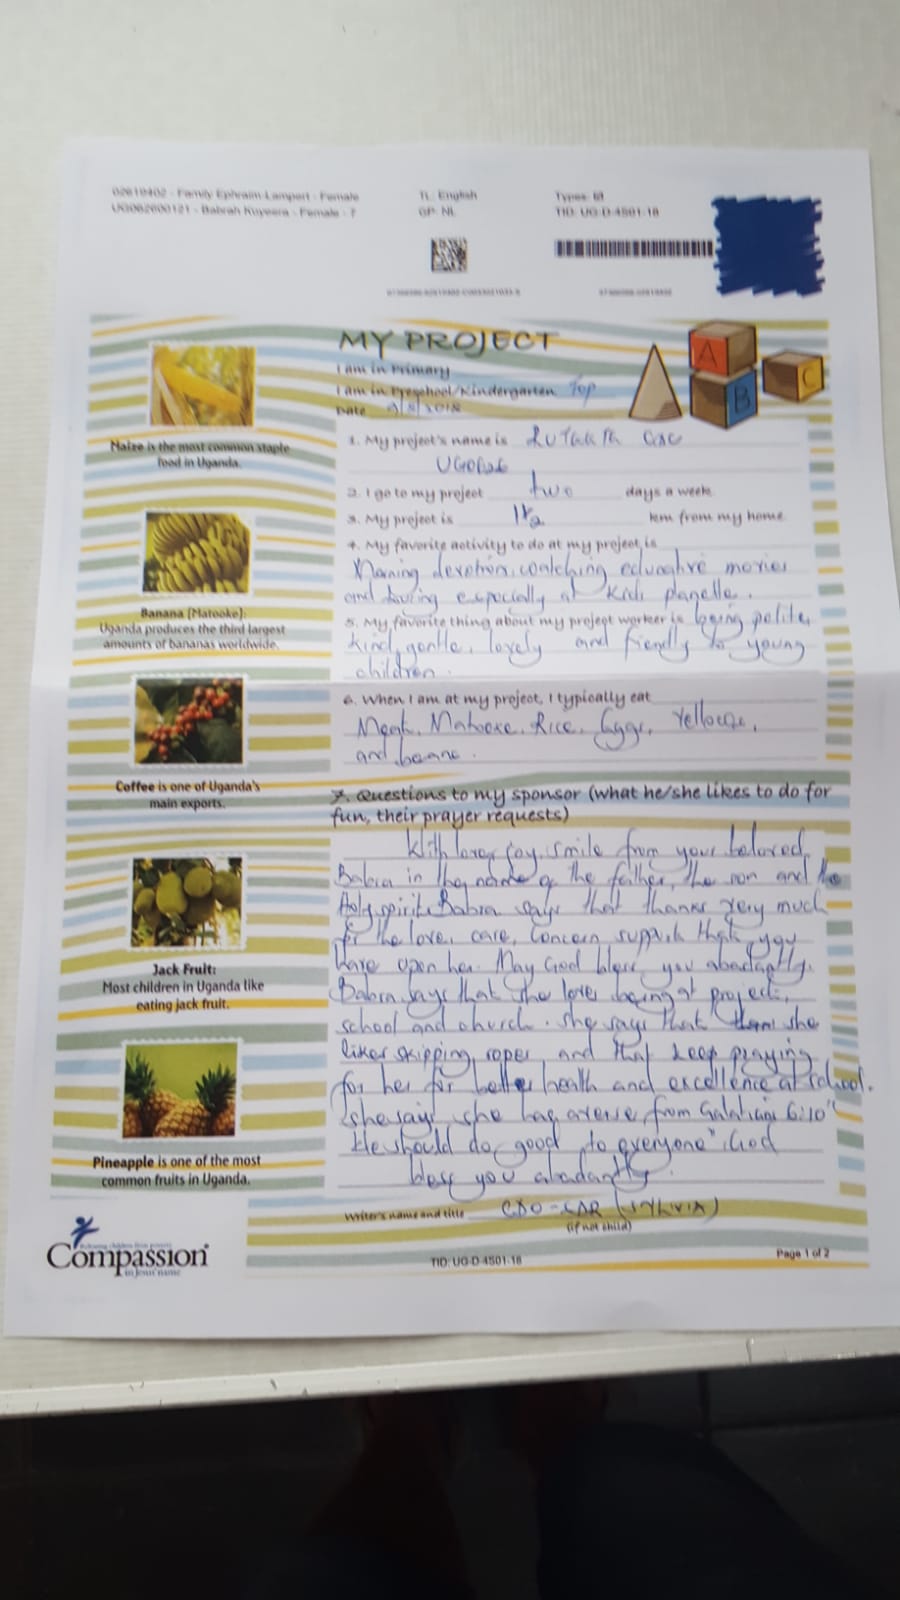 02619402 - Family Ephraim-Lampert - Female
UG062600121 - Babrah Kuyeera - Female - 7
TL: English
GP: NL
Types: M
TID: UG-D-4501-18
MY PROJECT
I am in Primary
I am in Preschool/Kindergarten Top
Date
A
B
C
1. My project's name is
2. I go to my project two days a week
3. My project is 1½ km from my home
4. My favorite activity to do at my project is
Morning devotion, watching educative movies
and especially at kids
5. My favorite thing about my project worker is being polite,
kind, gentle, lovely and friendly to young
children.
6. When I am at my project, I typically eat
Meat, Matooke, Rice, Eggs,
and beans.
7. Questions to my sponsor (what he/she likes to do for
fun, their prayer requests)
With love, joy, smile from your beloved
Babra in the name of the father, the son and the
Holy spirit. Babra says that thanks very much
for the love, care, concern support that you
have upon her. May God bless you
Babra says that she loves being at project,
school and church. she says that she
likes skipping ropes and that keep praying
for her for better health and excellence at school.
she says she has averse from Galatians 6:10"
We should do good to everyone". God
bless you
Writer's name and title CDO-SDR (SYLVIA)
(if not child)
Maize is the most common staple
food in Uganda.
Banana (Matooke):
Uganda produces the third largest
amounts of bananas worldwide.
Coffee is one of Uganda's
main exports.
Jack Fruit:
Most children in Uganda like
eating jack fruit.
Pineapple is one of the most
common fruits in Uganda.
Compassion
in Jesus' name
TID: UG-D-4501-18
Page 1 of 2